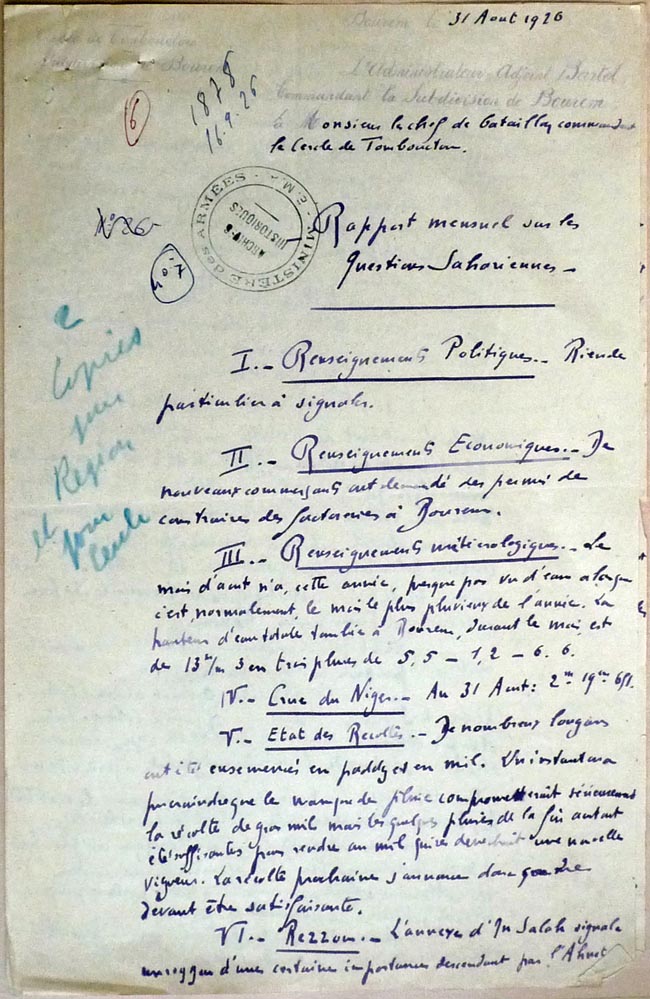 Bourem le 31 Aout 1926
Cercle de Tombouctou
Subdivision de Bourem
L'Administrateur-Adjoint
Commandant la Subdivision de Bourem
à Monsieur le chef de bataillon commandant
le Cercle de Tombouctou.
6
1878
16.9.26
N° 26
MINISTÈRE des ARMÉES
ARCHIVES
HISTORIQUES
Rapport mensuel sur les
Questions Sahariennes
2
Copies
pour
Région
et
pour
Cercle
I. - Renseignements Politiques. - Rien de
particulier à signaler.
II. - Renseignements Economiques. - De
nouveaux commerçants ont demandé des permis de
construire des factoreries à Bourem.
III. - Renseignements météorologiques. - Le
mois d'aout n'a, cette année, presque pas vu d'eau alors que
c'est, normalement, le mois le plus pluvieux de l'année. La
hauteur d'eau totale tombée à Bourem, durant le mois, est
de 13 m/m 3 en trois pluies de 5,5 - 1,2 - 6.6.
IV. - Crue du Niger. - Au 31 Aout: 2m 19
V. - Etat des Récoltes. - De nombreux lougans
ont été ensemencés en paddy et en mil. Un instant on a
pu craindre que le manque de pluie compromettrait sérieusement
la récolte de gros mil mais les quelques pluies de la fin aout ont
été suffisantes pour rendre au mil une nouvelle
vigueur. La récolte prochaine s'annonce donc comme
devant être satisfaisante.
VI. - Rezzou. - L'annexe d'In Salah signale
un rezzou d'une certaine importance descendant par l'Ahnet